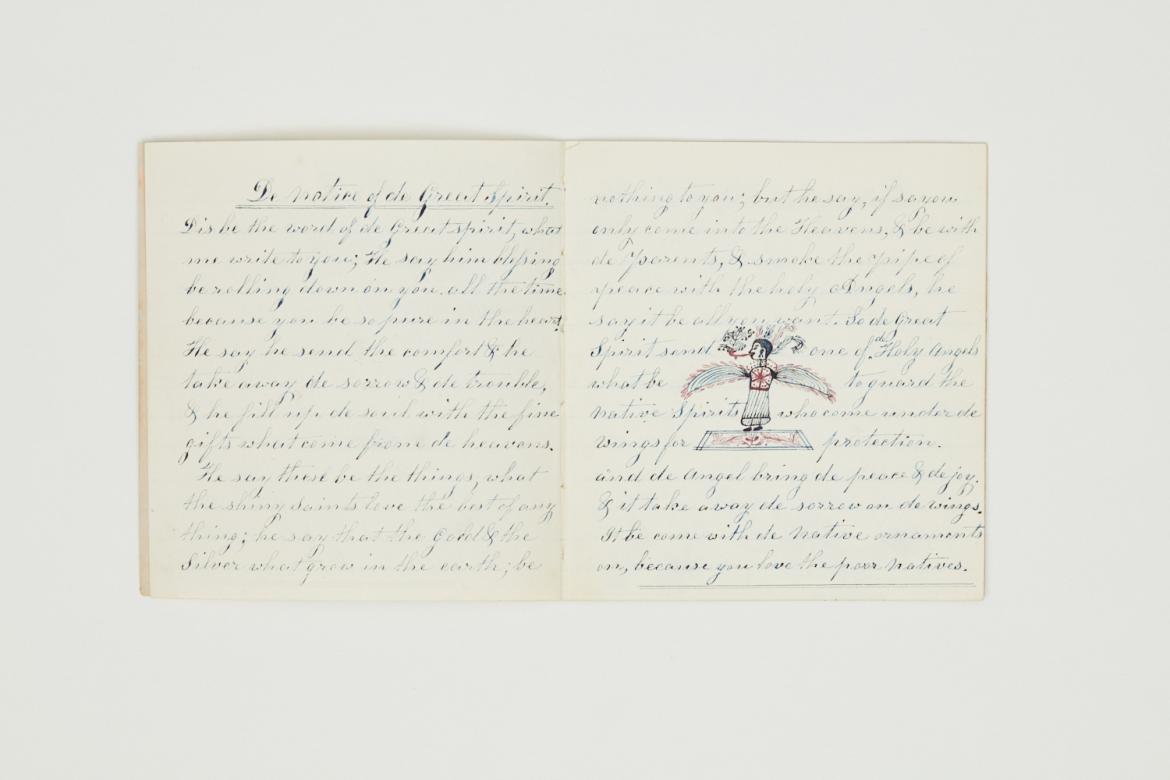 De notice of de Great Spirit.
Dis be the word of de Great Spirit, what
me write to you; He say him blessing
be rolling down on you all the time
because you be so pure in the heart
He say he send the comfort & he
take away de sorrow & de trouble,
& he fill up de soul with the fine
gifts what come from de heavens.
He say these be the things, what
the shiny saints love the best of any
thing; he say that the Gold & the
Silver what grow in the earth; be
nothing to you; but he say, if so you
only come into the Heavens, & be with
de parents, & smoke the pipe of
peace with the holy Angels, he
say it be all you want. So de Great
Spirit send one of de Holy Angels
what be to guard the
native Spirits who come under de
wings for protection.
and de Angel bring de peace & de joy.
& it take away de sorrow on de wings.
It be come with de native ornaments
on, because you love the poor natives.